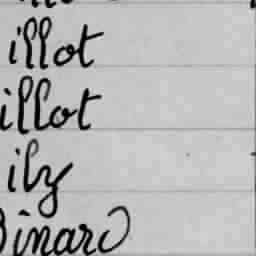 illot
illot
ily
Binard